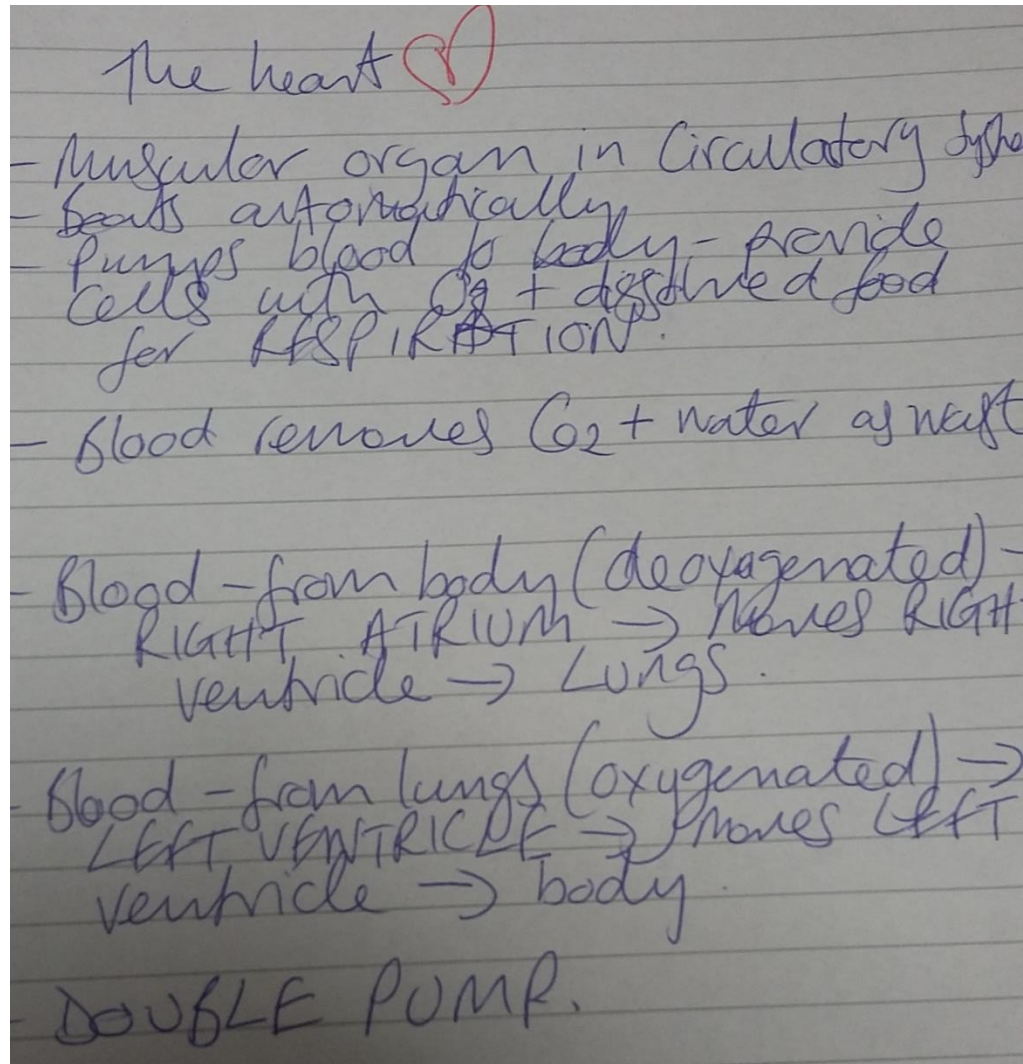 The heart
- Muscular organ in Circulatory Syste
- beats automatically
- Pumps blood to body - provide
cells with O2 + dissolved food
for RESPIRATION.
- Blood removes CO2 + water as wast
- Blood - from body (deoxagenated) -
RIGHT ATRIUM → Moves RIGH
ventricle → Lungs.
- Blood - from lungs (oxygenated) →
LEFT VENTRICLE → Moves LEFT
ventricle → body.
- DOUBLE PUMP.